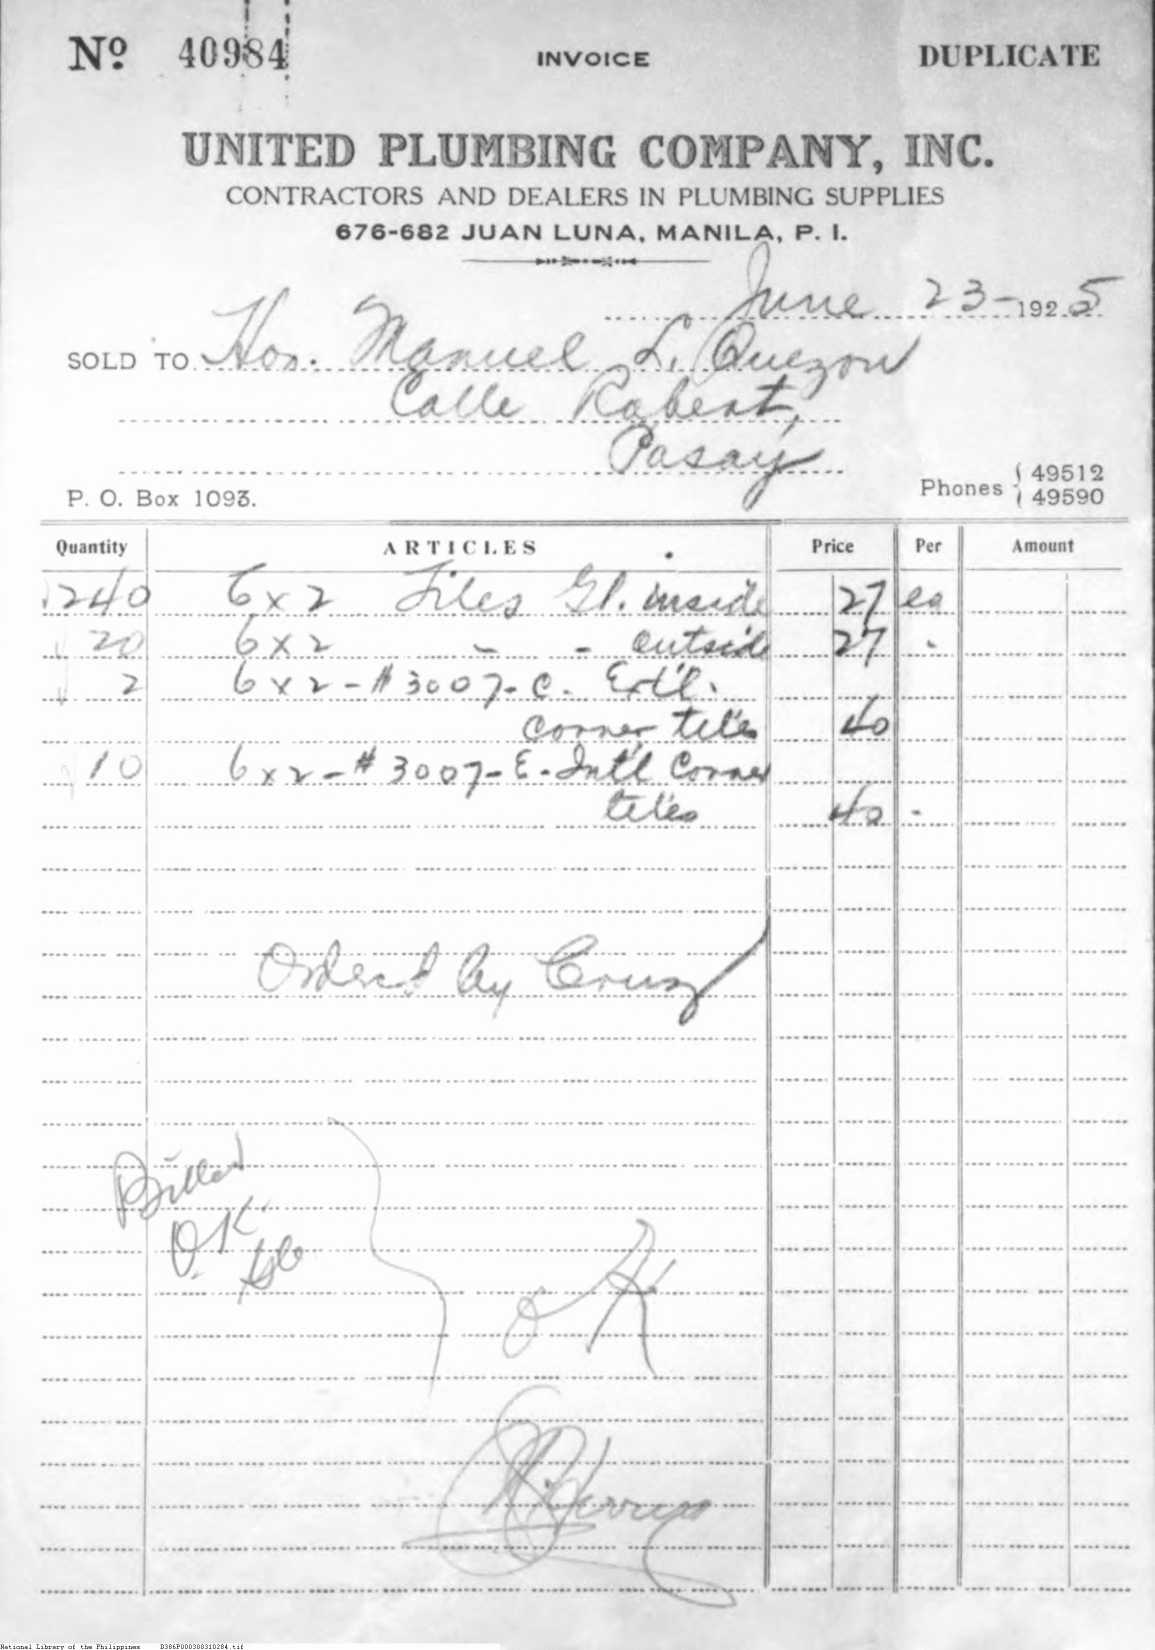 Nº 40984 INVOICE DUPLICATE
UNITED PLUMBING COMPANY, INC.
CONTRACTORS AND DEALERS IN PLUMBING SUPPLIES
676-682 JUAN LUNA, MANILA, P. I.
June 23- 1925
SOLD TO Hon. Manuel L. Quezon
Calle Robert,
Pasay
P. O. Box 1093. Phones { 49512
{ 49590
Quantity ARTICLES Price Per Amount
240 6 x 2 Tiles Gl. inside 27 ea
20 6 x 2 - - outside 27 -
2 6 x 2 - # 3007 - C. Ext'l.
corner tiles 40
10 6 x 2 - # 3007 - E - Int'l Corner
tiles 40 -
Ordered by Cruz
Billed
O.K.
OK
National Library of the Philippines B386P000308310284.tif